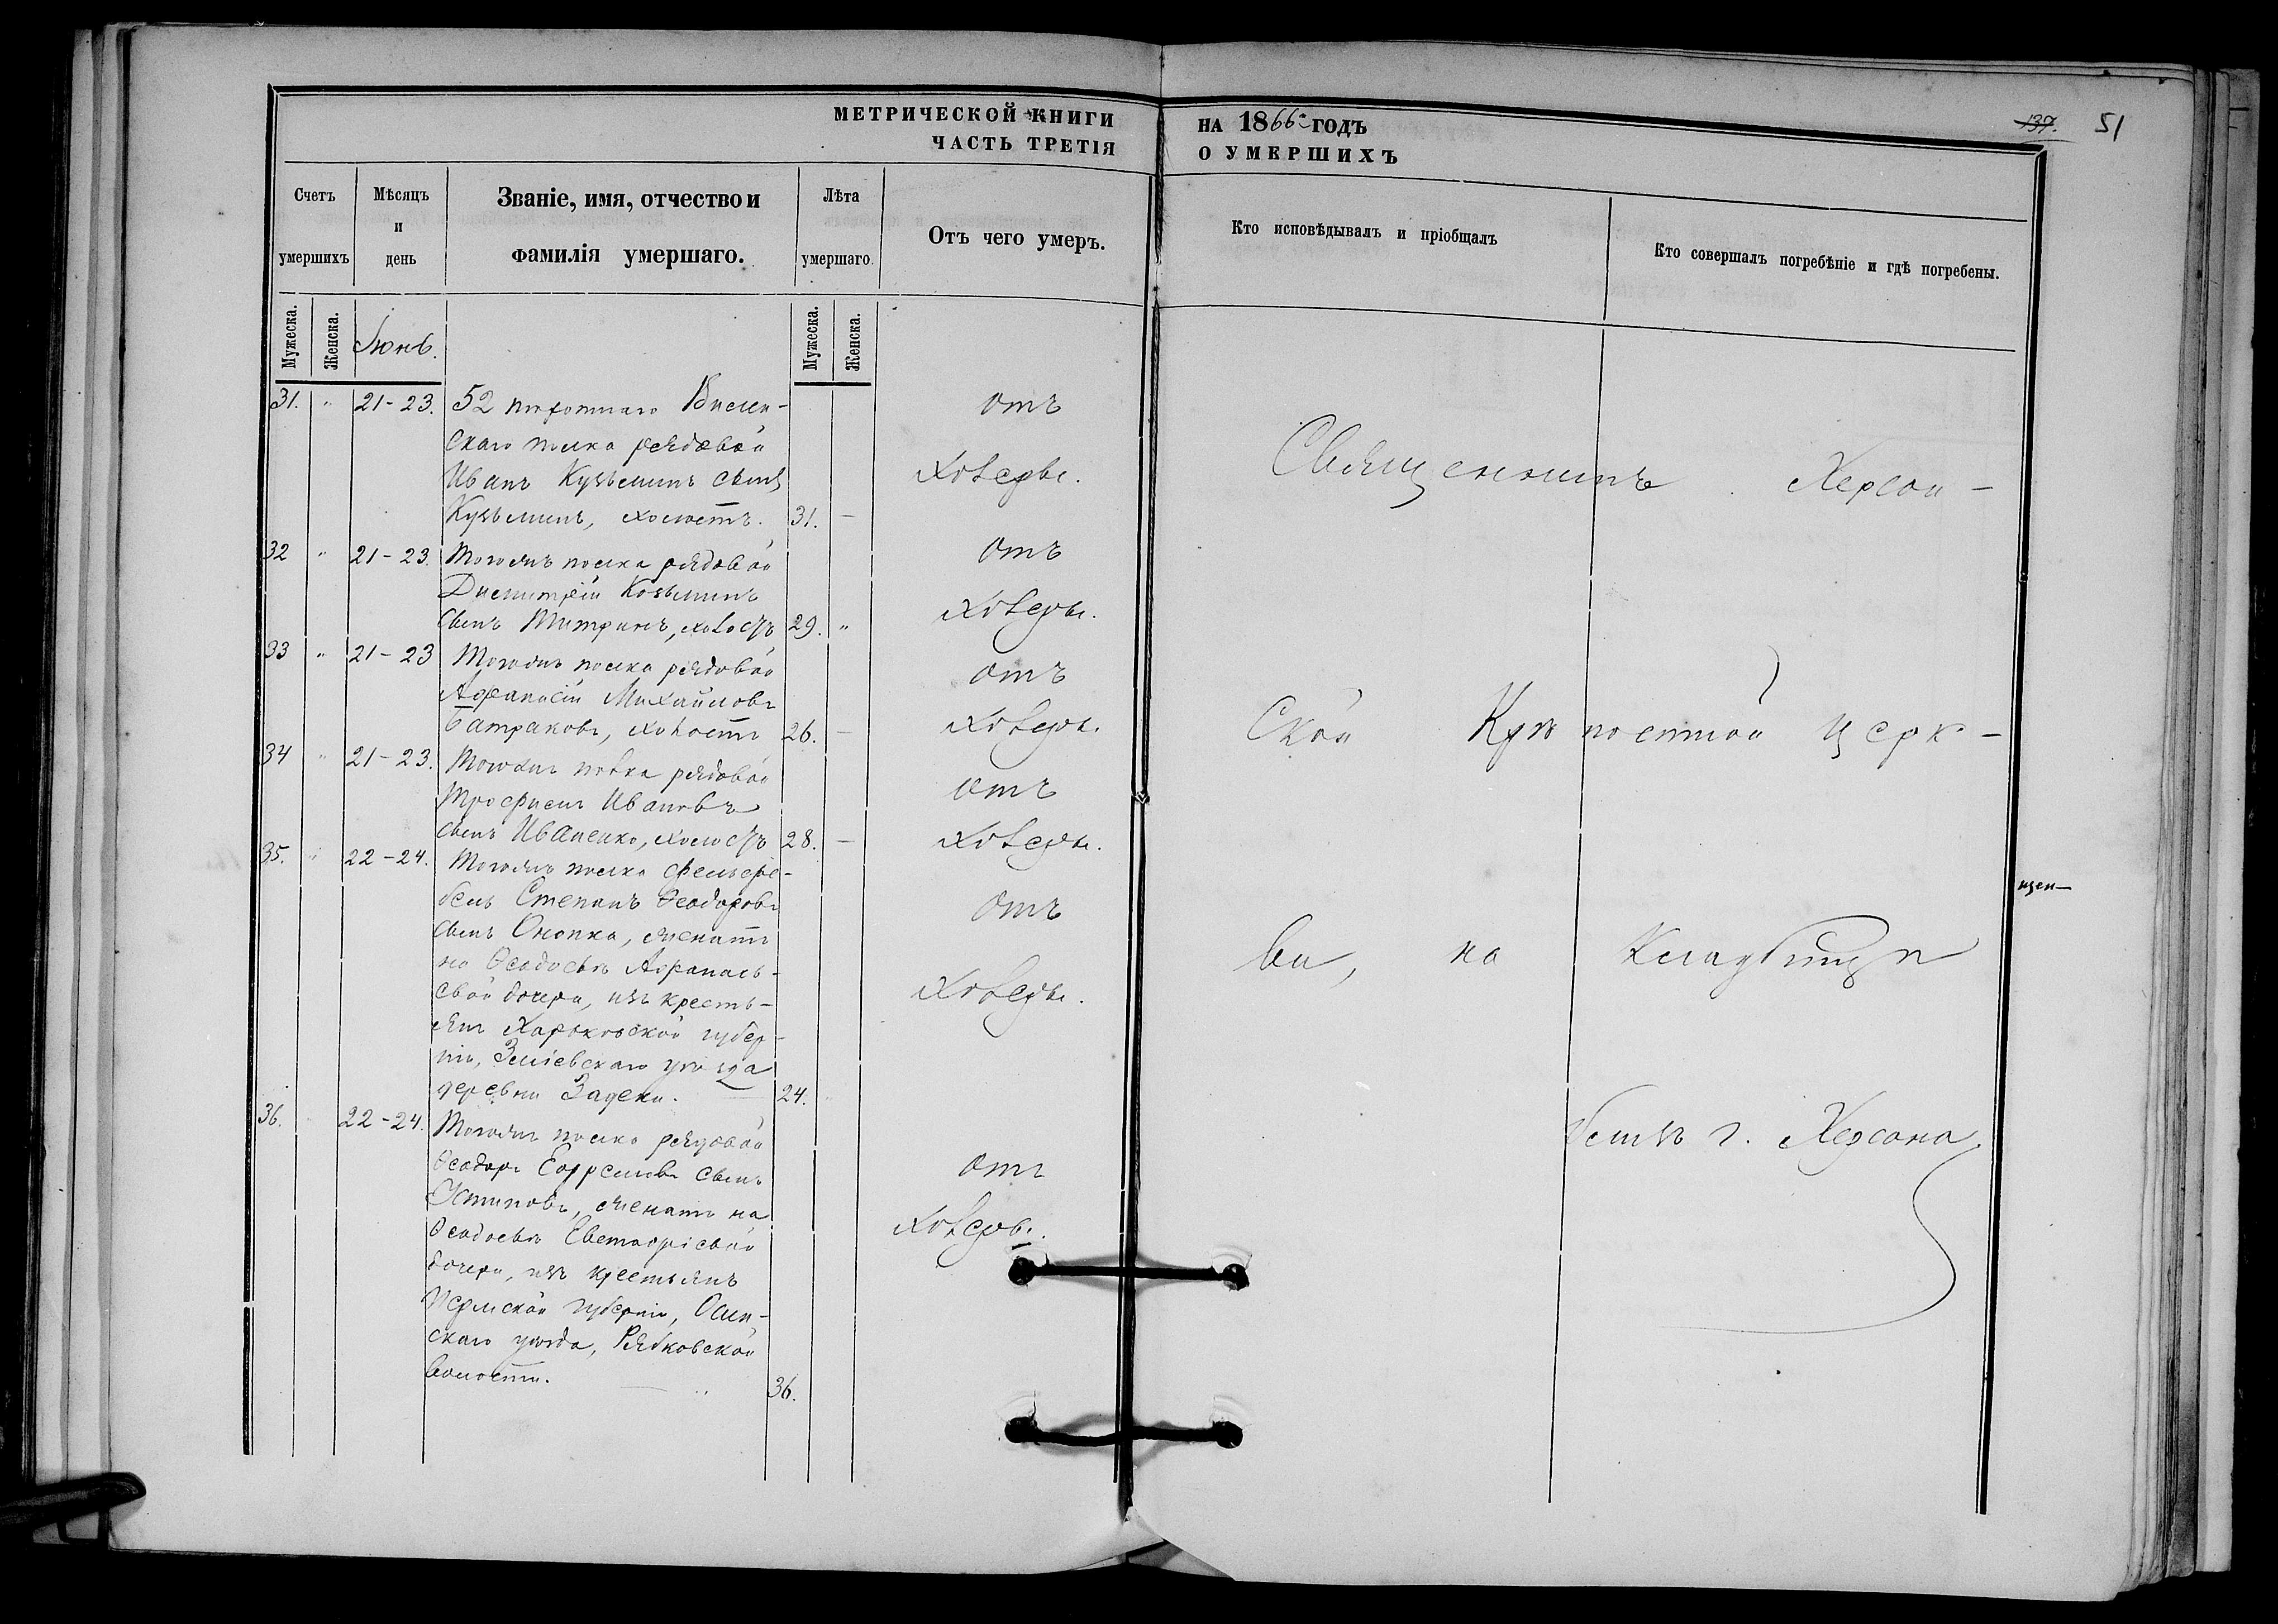 МЕТРИЧЕСКОЙ КНИГИ НА 1866 ГОДЪ
ЧАСТЬ ТРЕТІЯ О УМЕРШИХЪ
137. 51
Счетъ умершихъ
Мѣсяцъ и день
Званіе, имя, отчество и фамилія умершаго.
Лѣта умершаго.
Отъ чего умеръ.
Кто исповѣдывалъ и пріобщалъ
Кто совершалъ погребѣніе и гдѣ погребены.
Мужеска. Женска. Іюнь. Мужеска. Женска.
31. " 21-23. 52 пѣхотнаго Вилен- отъ
скаго полка рядовой
Иванъ Кузьминъ сынъ холеры.
Кузьминъ, холостъ. 31. —
32 " 21-23. Тогожъ полка рядовой отъ
Димитрій Козьминъ
сынъ Митринъ, холостъ 29. " холеры.
33 " 21-23 Тогожъ полка рядовой отъ
Афанасій Михайловъ
Батраковъ, холостъ 26. — холеры.
34 " 21-23. Тогожъ полка рядовой
Трофимъ Ивановъ отъ
сынъ Иваненко, холостъ 28. — холеры.
35. " 22-24. Тогожъ полка фельдфе-
бель Степанъ Ѳеодоровъ отъ
сынъ Онопка, женатъ
на Ѳеодосьѣ Афанась-
евой дочери, изъ кресть- холеры.
янъ Харьковской губер-
ніи, Зміевскаго уѣзда
деревни Задеки. 24.
36. 22-24. Тогожъ полка рядовой
Ѳеодоръ Ефремовъ сынъ отъ
Устиновъ, женатъ на
Ѳеодосьѣ Евстафіевой холеры.
дочери, изъ крестьянъ
Пермской губерніи, Осин-
скаго уѣзда, Рябковской
волости. 36.
Священникъ Херсон-
ской Крѣпостной церк-
ви, на Кладбищѣ
близъ г. Херсона.